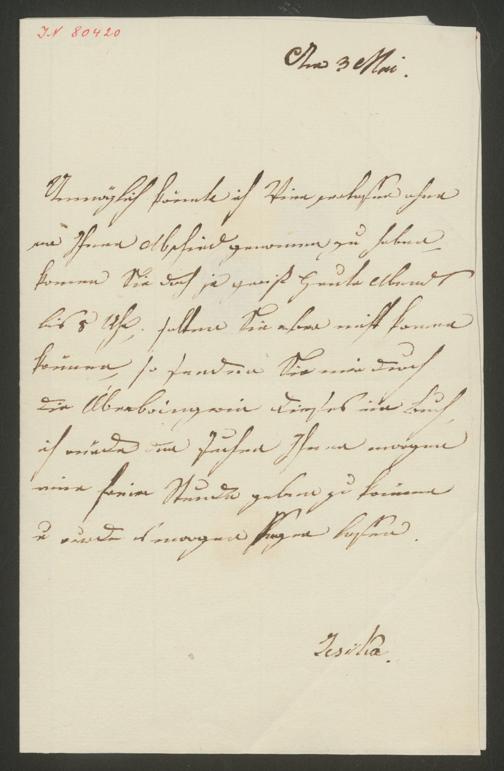 IN 80420
Am 3 Mai.
Unmöglich könnte ich Wien verlassen ohne
von Ihnen Abschied genommen zu haben,
komen Sie doch ja gewiß heute Abends
bis 8 Uhr, solten Sie aber nicht komen
können, so senden Sie mir durch
die Überbringerin dieses ein Buch,
ich würde suchen Ihnen morgen
eine freie Stunde geben zu können
u würde es morgen sagen lassen.